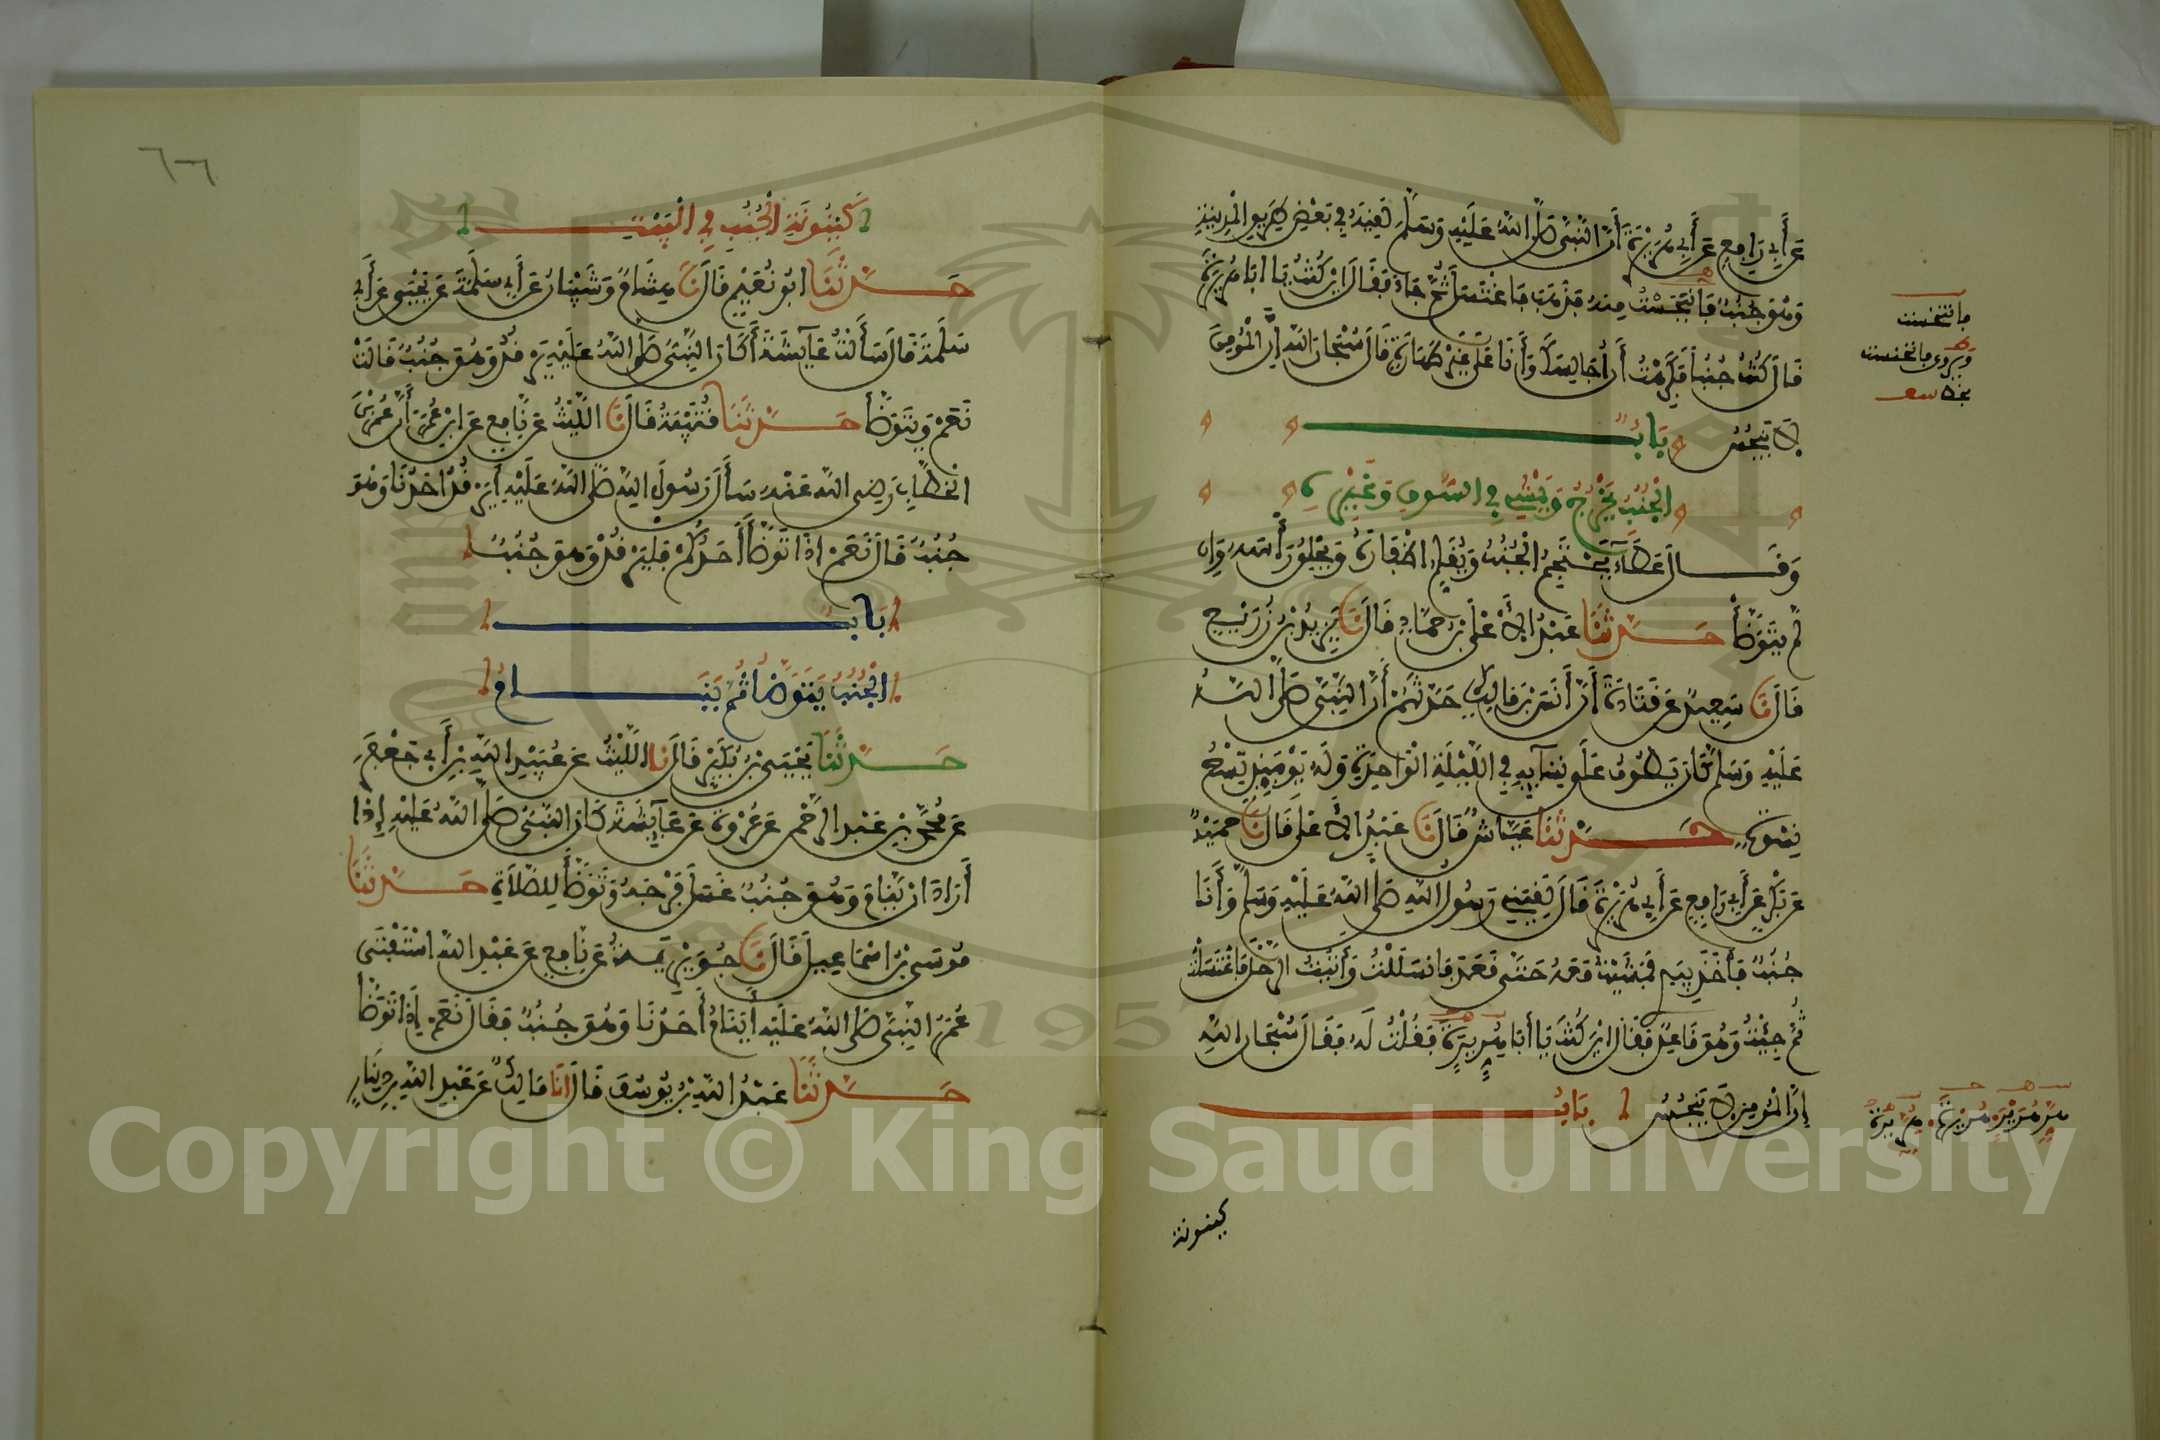 عَن أَبِي رَافِعٍ عَن أَبِي هُرَيْرَةَ أَنَّ النَّبِيَّ صَلَّى اللهُ عَلَيْهِ وَسَلَّمَ لَقِيَهُ فِي بَعْضِ طَرِيقِ الْمَدِينَةِ
وَهُوَ جُنُبٌ فَانْبَجَسْتُ مِنْهُ فَذَهَبَ فَاغْتَسَلَ ثُمَّ جَاءَ فَقَالَ أَيْنَ كُنْتَ يَا أَبَا هُرَيْرَةَ
قَالَ كُنْتُ جُنُباً فَكَرِهْتُ أَنْ أُجَالِسَكَ وَأَنَا عَلَى غَيْرِ طَهَارَةٍ قَالَ سُبْحَانَ اللهِ إِنَّ الْمُؤْمِنَ
لَا يَنْجُسُ بَابٌ
الْجُنُبُ يَخْرُجُ وَيَمْشِي فِي السُّوقِ وَغَيْرِهِ
وَقَالَ عَطَاءٌ يَحْتَجِمُ الْجُنُبُ وَيُقَلِّمُ أَظْفَارَهُ وَيَحْلِقُ رَأْسَهُ وَإِن
لَّمْ يَتَوَضَّأْ حَدَّثَنَا عَبْدُ الْأَعْلَى بْنُ حَمَّادٍ قَالَ نَا يَزِيدُ بْنُ زُرَيْعٍ
قَالَ نَا سَعِيدٌ عَن قَتَادَةَ أَنَّ أَنَسَ بْنَ مَالِكٍ حَدَّثَهُمْ أَنَّ النَّبِيَّ صَلَّى اللهُ
عَلَيْهِ وَسَلَّمَ كَانَ يَطُوفُ عَلَى نِسَائِهِ فِي اللَّيْلَةِ الْوَاحِدَةِ وَلَهُ يَوْمَئِذٍ تِسْعُ
نِسْوَةٍ حَدَّثَنَا عَيَّاشٌ قَالَ نَا عَبْدُ الْأَعْلَى قَالَ نَا حُمَيْدٌ
عَن بَكْرٍ عَن أَبِي رَافِعٍ عَن أَبِي هُرَيْرَةَ قَالَ لَقِيَنِي رَسُولُ اللهِ صَلَّى اللهُ عَلَيْهِ وَسَلَّمَ وَأَنَا
جُنُبٌ فَأَخَذَ بِيَدِي فَمَشَيْتُ مَعَهُ حَتَّى قَعَدَ فَانْسَلَلْتُ وَأَتَيْتُ الرَّحْلَ فَاغْتَسَلْتُ
ثُمَّ جِئْتُ وَهُوَ قَاعِدٌ فَقَالَ أَيْنَ كُنْتَ يَا أَبَا هُرَيْرَةَ فَقُلْتُ لَهُ فَقَالَ سُبْحَانَ اللهِ
إِنَّ الْمُؤْمِنَ لَا يَنْجُسُ بَابُ
كينونة
فانتجست
ويروى فانخنست
٦٦
كَيْنُونَةِ الْجُنُبِ فِي الْبَيْتِ
حَدَّثَنَا أَبُو نُعَيْمٍ قَالَ نَا هِشَامٌ وَشَيْبَانُ عَن أَبِي سَلَمَةَ عَن يَحْيَى عَن أَبِي
سَلَمَةَ قَالَ سَأَلْتُ عَائِشَةَ أَكَانَ النَّبِيُّ صَلَّى اللهُ عَلَيْهِ يَرْقُدُ وَهُوَ جُنُبٌ قَالَتْ
نَعَمْ وَيَتَوَضَّأُ حَدَّثَنَا قُتَيْبَةُ قَالَ نَا اللَّيْثُ عَن نَّافِعٍ عَن ابْنِ عُمَرَ أَنَّ عُمَرَ بْنَ
الْخَطَّابِ رَضِيَ اللهُ عَنْهُ سَأَلَ رَسُولَ اللهِ صَلَّى اللهُ عَلَيْهِ أَيَرْقُدُ أَحَدُنَا وَهُوَ
جُنُبٌ قَالَ نَعَمْ إِذَا تَوَضَّأَ أَحَدُكُمْ فَلْيَرْقُدْ وَهُوَ جُنُبٌ
بَابُ
الْجُنُبُ يَتَوَضَّأُ ثُمَّ يَنَامُ
حَدَّثَنَا يَحْيَى بْنُ بُكَيْرٍ قَالَ نَا اللَّيْثُ عَن عُبَيْدِ اللهِ بْنِ أَبِي جَعْفَرٍ
عَن مُحَمَّدِ بْنِ عَبْدِ الرَّحْمَنِ عَن عُرْوَةَ عَن عَائِشَةَ كَانَ النَّبِيُّ صَلَّى اللهُ عَلَيْهِ إِذَا
أَرَادَ أَنْ يَنَامَ وَهُوَ جُنُبٌ غَسَلَ فَرْجَهُ وَتَوَضَّأَ لِلصَّلَاةِ حَدَّثَنَا
مُوسَى بْنُ إِسْمَاعِيلَ قَالَ نَا جُوَيْرِيَةُ عَن نَافِعٍ عَن عَبْدِ اللهِ اسْتَفْتَى
عُمَرُ النَّبِيَّ صَلَّى اللهُ عَلَيْهِ أَيَنَامُ أَحَدُنَا وَهُوَ جُنُبٌ فَقَالَ نَعَمْ إِذَا تَوَضَّأَ
حَدَّثَنَا عَبْدُ اللهِ بْنُ يُوسُفَ قَالَ أَنَا مَالِكٌ عَن عَبْدِ اللهِ بْنِ دِينَارٍ
Copyright © King Saud University
1957